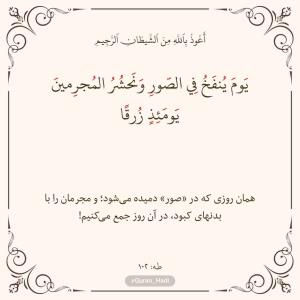 أَعُوذُ بِاللَّهِ مِنَ الشَّيْطَانِ الرَّجِيمِ
يَومَ يُنفَخُ فِي الصّورِ وَنَحشُرُ المُجرِمينَ
يَومَئِذٍ زُرقًا
همان روزی که در «صور» دمیده می‌شود؛ و مجرمان را با
بدنهای کبود، در آن روز جمع می‌کنیم!
طه: ۱۰۲
@Quran_Hadi